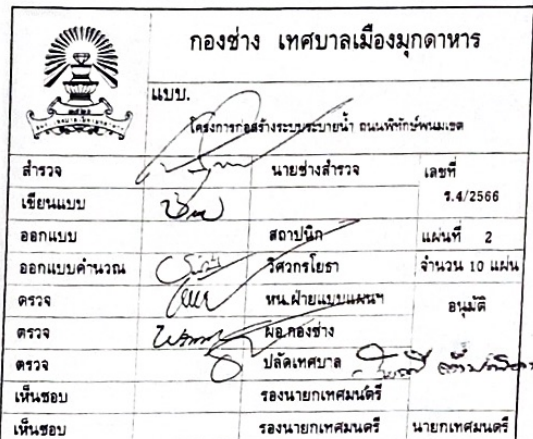 กองช่าง เทศบาลเมืองมุกดาหาร
แบบ.
โครงการก่อสร้างระบบระบายน้ำ ถนนพิทักษ์พนมเขต
สำรวจ นายช่างสำรวจ เลขที่
ร.4/2566
เขียนแบบ
ออกแบบ สถาปนิก แผ่นที่ 2
ออกแบบคำนวณ วิศวกรโยธา จำนวน 10 แผ่น
ตรวจ หน.ฝ่ายแบบแผนฯ อนุมัติ
ตรวจ ผอ.กองช่าง
ตรวจ ปลัดเทศบาล
เห็นชอบ รองนายกเทศมนตรี
เห็นชอบ รองนายกเทศมนตรี นายกเทศมนตรี